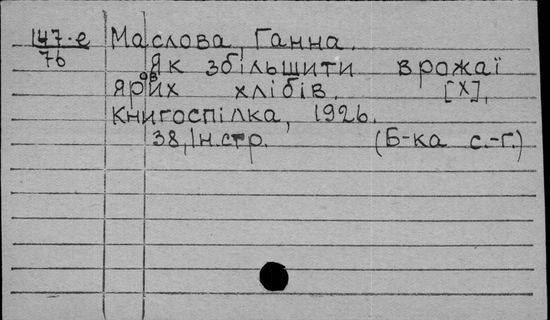 147-е Маслова, Ганна.
76
Як збільшити врожаї
ярових хлібів. [Х],
Книгоспілка, 1926.
38, Ін.стр. (Б-ка с.-г.)